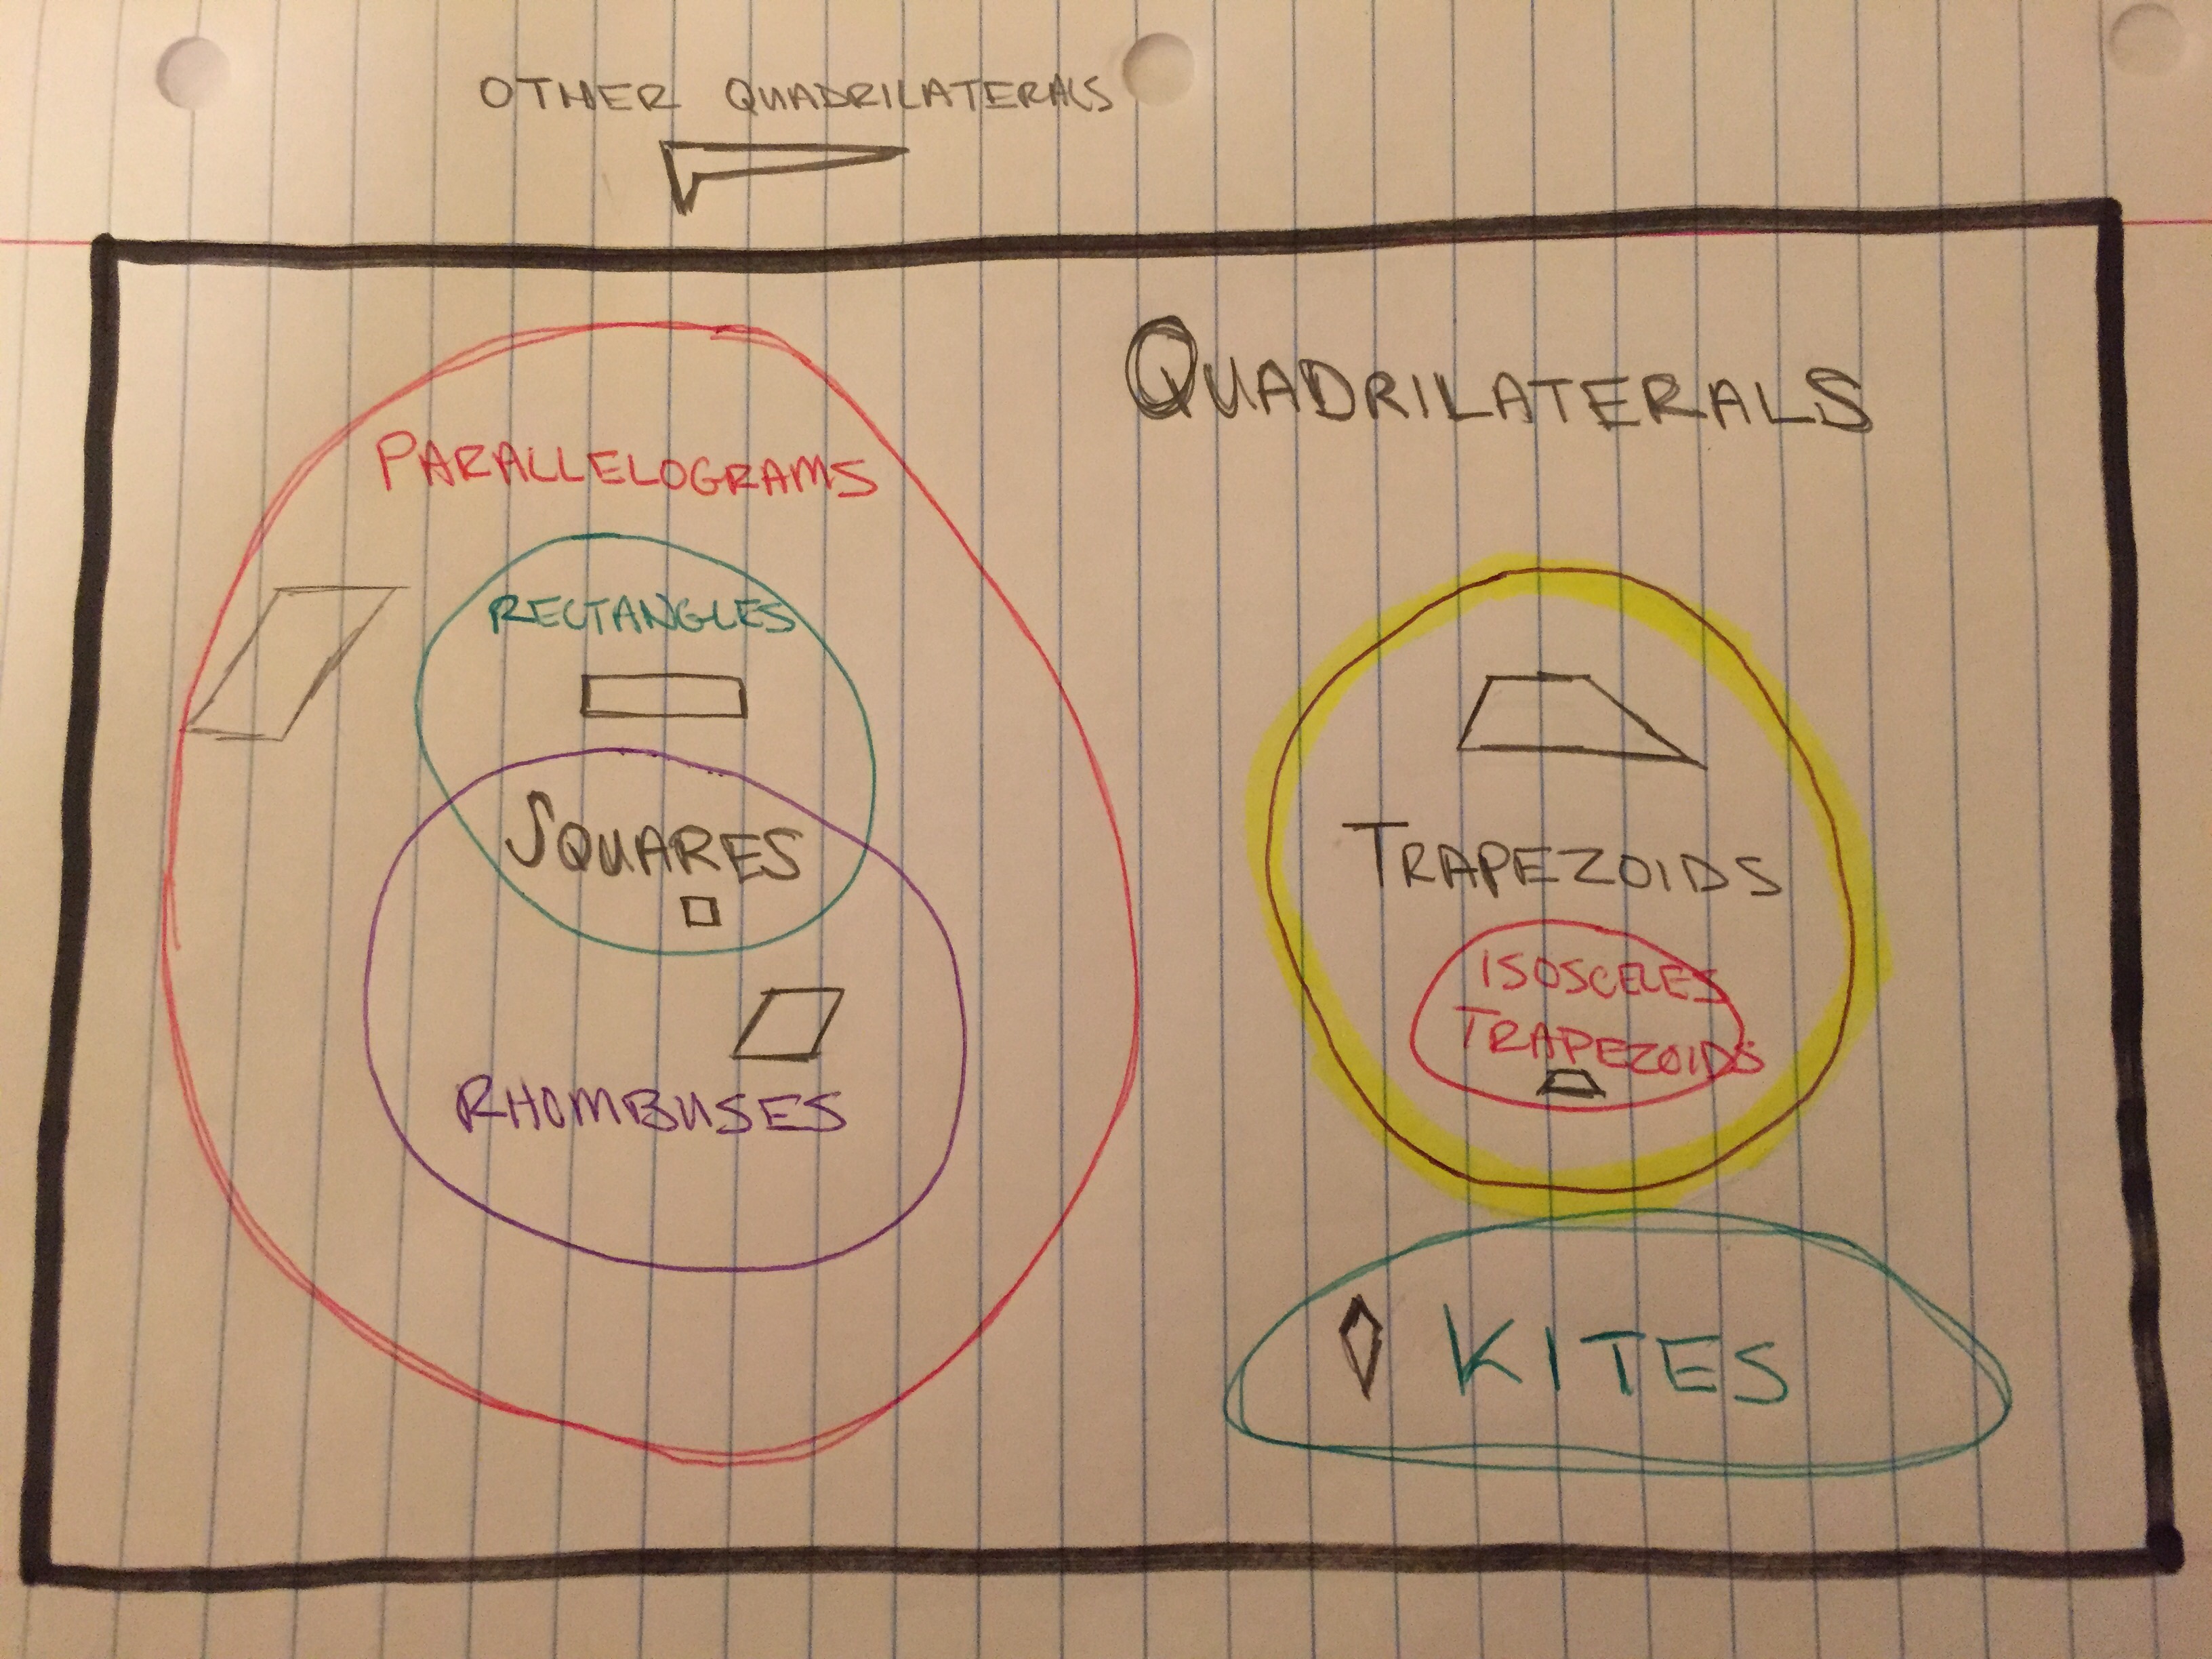 OTHER QUADRILATERALS
QUADRILATERALS
PARALLELOGRAMS
RECTANGLES
SQUARES
RHOMBUSES
TRAPEZOIDS
ISOSCELES
TRAPEZOIDS
KITES